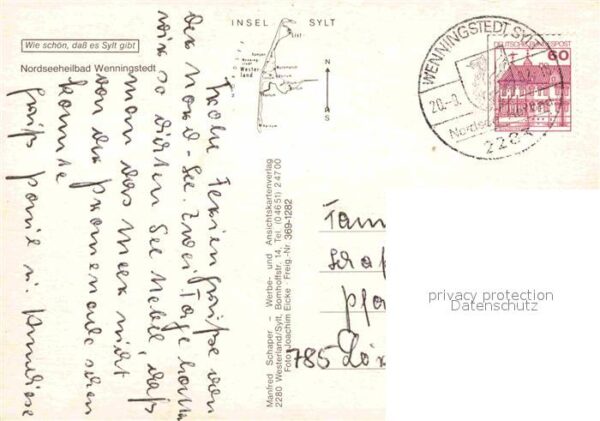 Wie schön, daß es Sylt gibt
Nordseeheilbad Wenningstedt
INSEL SYLT
Wester-
land
N
S
WENNINGSTEDT SYLT
2283
DEUTSCHE BUNDESPOST
60
Manfred Schaper – Werbe- und Ansichtskartenverlag
2280 Westerland/Sylt, Bomhoffstr. 14, Tel. (0 46 51) 2 47 00
Foto: Joachim Eicke · Freig.-Nr. 369-1282
Frohe Feriengrüße von
der Nord-See. Zwei Tage hatten
wir so dichten See Nebel, daß
man das Meer nicht
von der Promenade sehen
konnte
Fam
785 Lör
privacy protection
Datenschutz